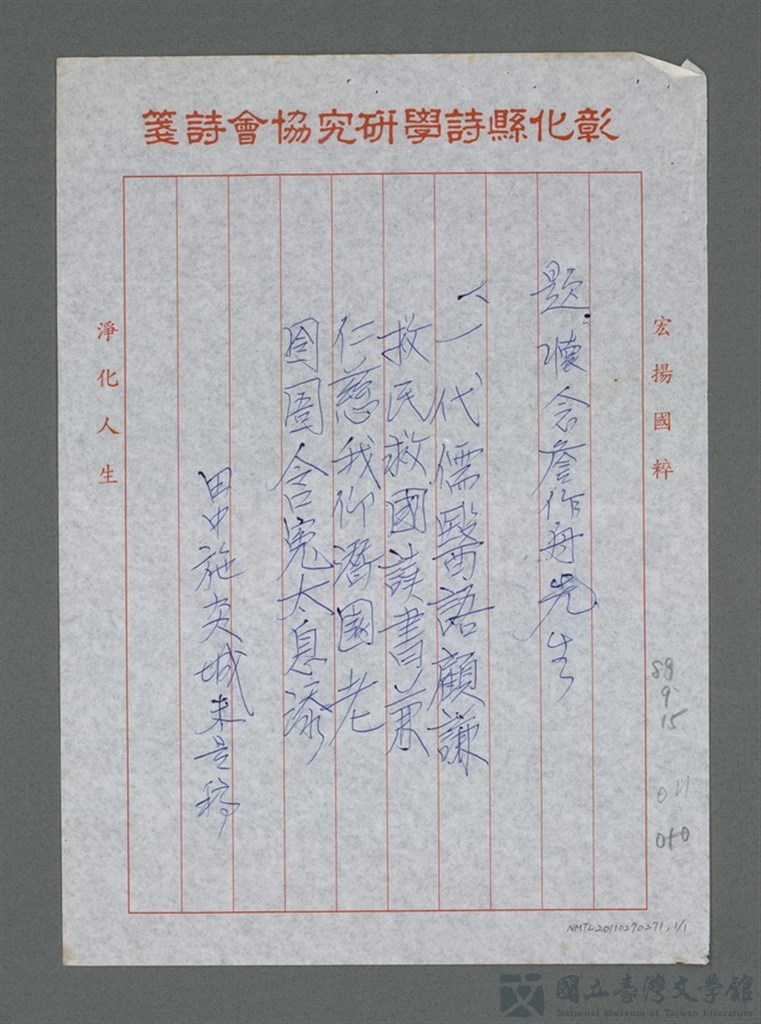 彰化縣詩學研究協會詩箋
宏揚國粹
題:懷念詹作舟先生
一代儒醫語顧謙
救民救國讀書兼
仁慈我仰濟國老
囹圄含冤太息添
田中施文城未是稿
淨化人生
89
9
15
011
010
NMTL20110270271, 1/1
國立臺灣文學館
National Museum of Taiwan Literature